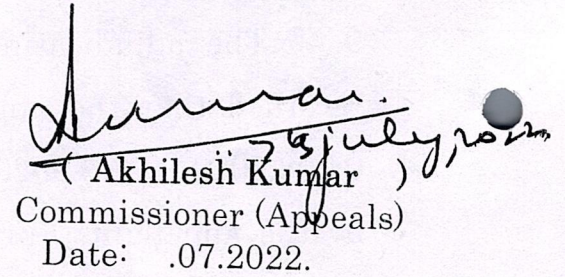 ( Akhilesh Kumar )
Commissioner (Appeals)
Date: .07.2022.